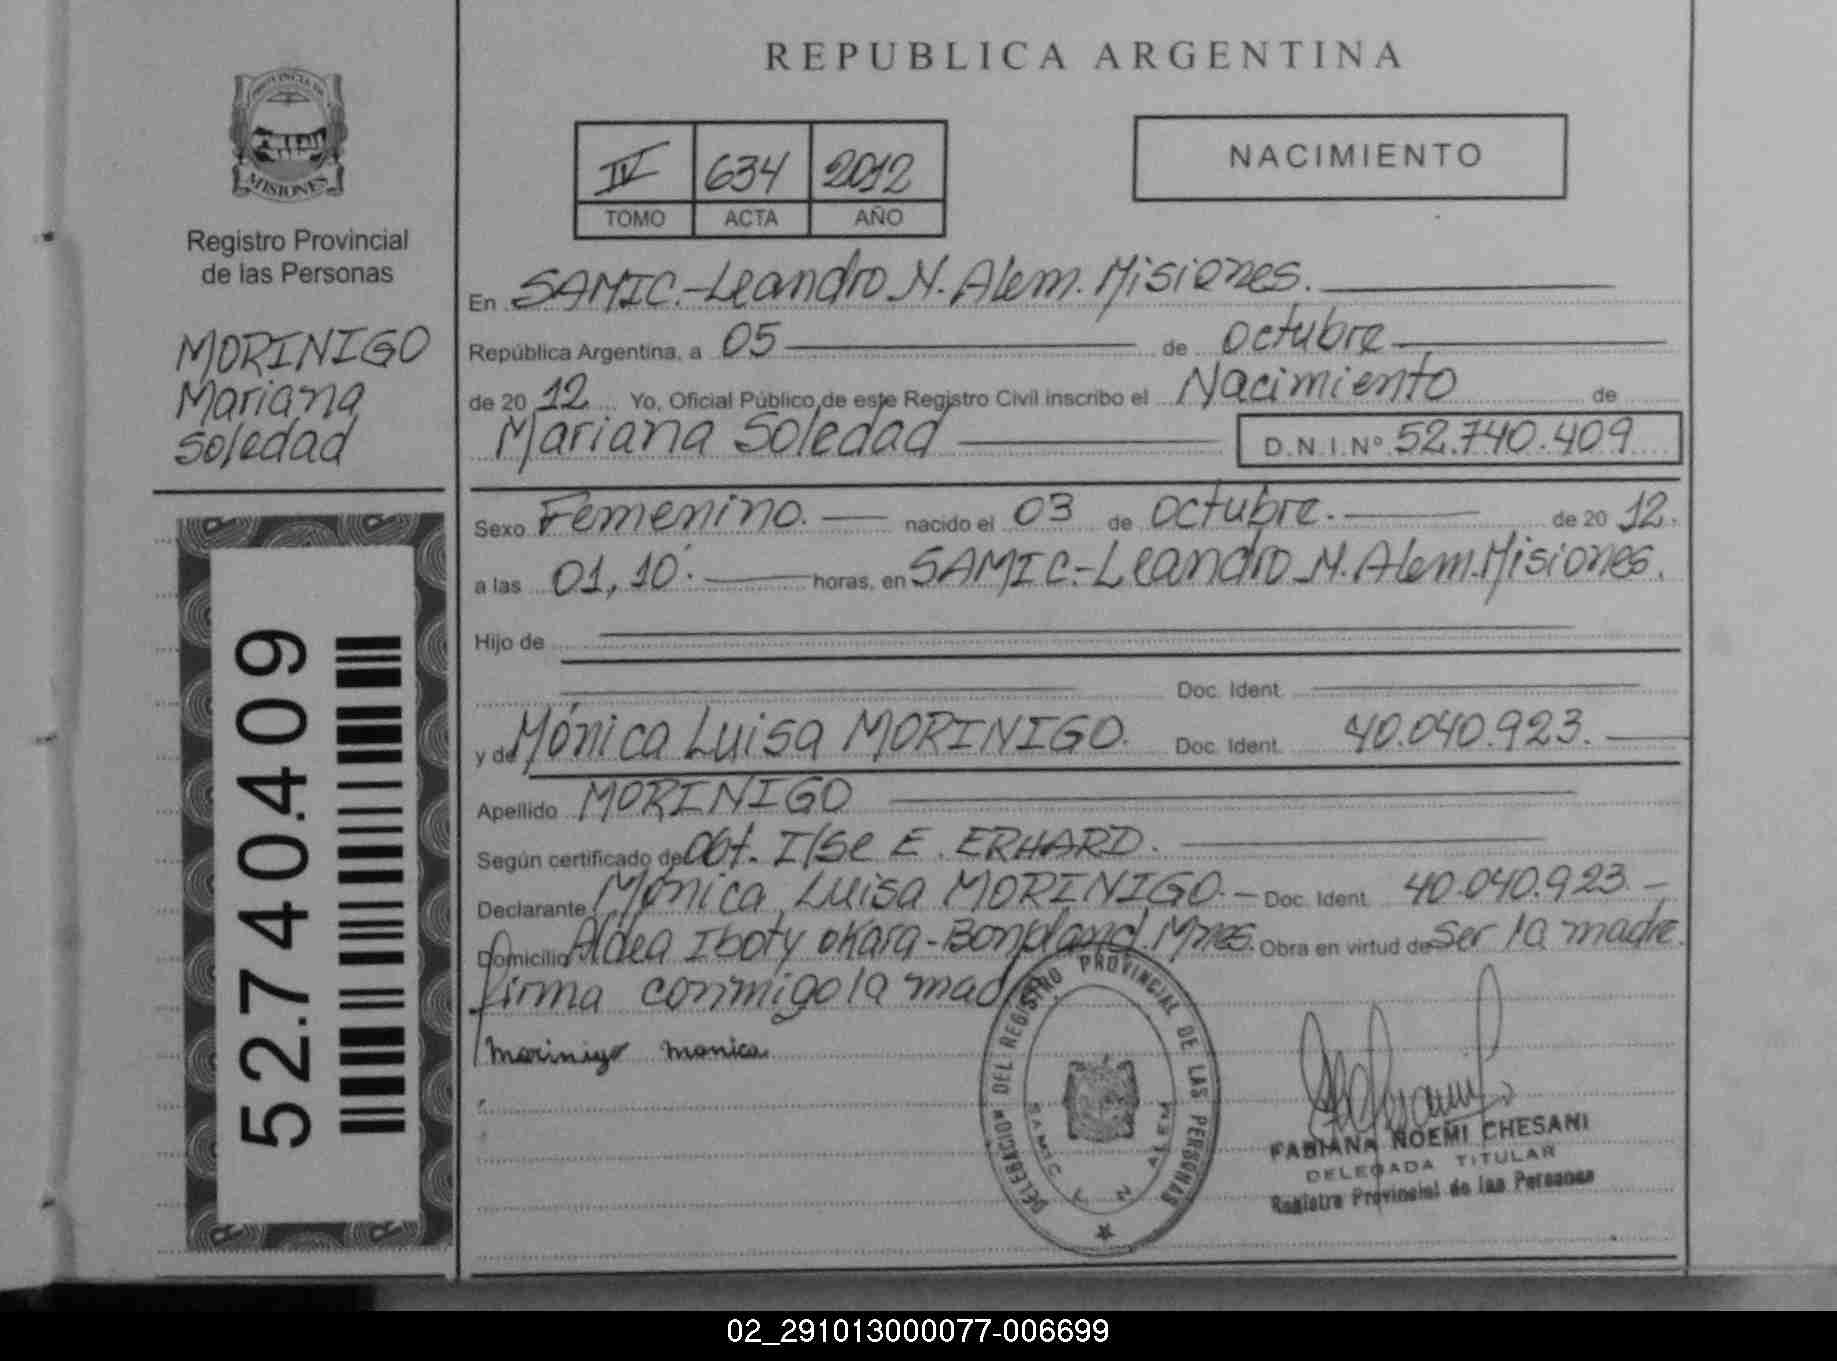 REPUBLICA ARGENTINA
PROVINCIA DE
MISIONES
Registro Provincial
de las Personas
MORINIGO
Mariana
Soledad
52.740.409
IV 634 2012
TOMO ACTA AÑO
NACIMIENTO
En SAMIC.-Leandro N. Alem. Misiones.
República Argentina, a 05 de octubre
de 20 12 Yo, Oficial Público de este Registro Civil inscribo el Nacimiento de
Mariana Soledad D.N.I.Nº 52.740.409
Sexo Femenino. nacido el 03 de octubre. de 20 12.
a las 01,10. horas, en SAMIC.-Leandro N. Alem. Misiones.
Hijo de
Doc. Ident.
y de Mónica Luisa MORINIGO. Doc. Ident. 40.040.923.
Apellido MORINIGO
Según certificado de Obt. Ilse E. ERHARD.
Declarante Mónica Luisa MORINIGO.- Doc. Ident. 40.040.923.-
Domicilio Aldea Iboty okara-Bonpland. Mnes. Obra en virtud de ser la madre.
firma conmigo la madre
morinigo monica
DELEGACION DEL REGISTRO PROVINCIAL DE LAS PERSONAS
SAMIC L N ALEM
FABIANA NOEMI CHESANI
DELEGADA TITULAR
Registro Provincial de las Personas
02_291013000077-006699